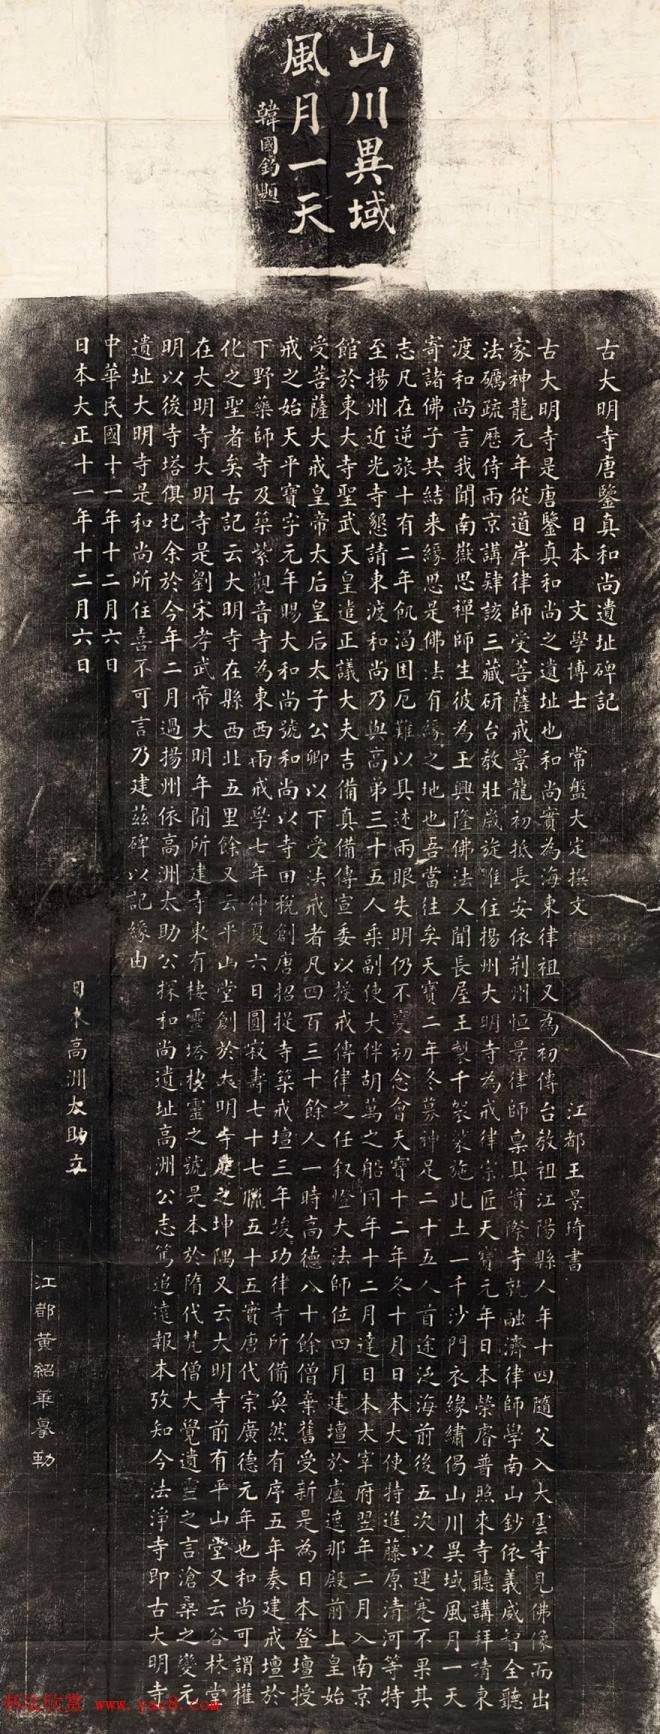 山川異域
風月一天
韓國鈞題
古大明寺唐鑒真和尚遺址碑記
日本 文學博士 常盤大定撰文 江都王景琦書
古大明寺是唐鑒真和尚之遺址也和尚實為海東律祖又為初傳台教祖江陽縣人年十四隨父入大雲寺見佛像而出
家神龍元年從道岸律師受菩薩戒景龍初抵長安依荊州恒景律師稟具實際寺就融濟律師學南山鈔依義威智全聽
法礪疏歷侍兩京講肆該三藏研台教壯歲旋淮住揚州大明寺為戒律宗匠天寶元年日本榮睿普照來寺聽講拜請東
渡和尚言我聞南嶽思禪師生彼為王興隆佛法又聞長屋王製千袈裟施此土一千沙門衣緣繡偈山川異域風月一天
寄諸佛子共結來緣思是佛法有緣之地也吾當往矣天寶二年冬募神足二十五人首途泛海前後五次以運蹇不果其
志凡在逆旅十有二年飢渴困厄難以具述兩眼失明仍不變初念會天寶十二年冬十月日本大使特進藤原清河等特
至揚州近光寺懇請東渡和尚乃與高弟三十五人乘副使大伴胡萬之船同年十二月達日本太宰府翌年二月入南京
館於東大寺聖武天皇遣正議大夫吉備真備傳宣委以授戒傳律之任叙燈大法師位四月建壇於盧遮那殿前上皇始
受菩薩大戒皇帝太后皇后太子公卿以下受法戒者凡四百三十餘人一時高德八十餘僧棄舊受新是為日本登壇授
戒之始天平寶字元年賜大和尚號和尚以寺田税創唐招提寺築戒壇三年竣功律寺所備奐然有序五年奏建戒壇於
下野藥師寺及築紫觀音寺為東西兩戒學七年仲夏六日圓寂壽七十七臘五十五實唐代宗廣德元年也和尚可謂權
化之聖者矣古記云大明寺在縣西北五里餘又云平山堂創於大明寺庭之坤隅又云大明寺前有平山堂又云谷林堂
在大明寺大明寺是劉宋孝武帝大明年間所建寺東有棲靈塔棲靈之號是本於隋代梵僧大覺遺靈之言滄桑之變元
明以後寺塔俱圮余於今年二月過揚州依高洲太助公探和尚遺址高洲公志篤追遠報本攷知今法淨寺即古大明寺
遺址大明寺是和尚所住喜不可言乃建茲碑以記緣由
中華民國十一年十二月六日
日本大正十一年十二月六日 日本高洲太助立
江都黃紹華摹勒
书法欣赏 www.yac8.com